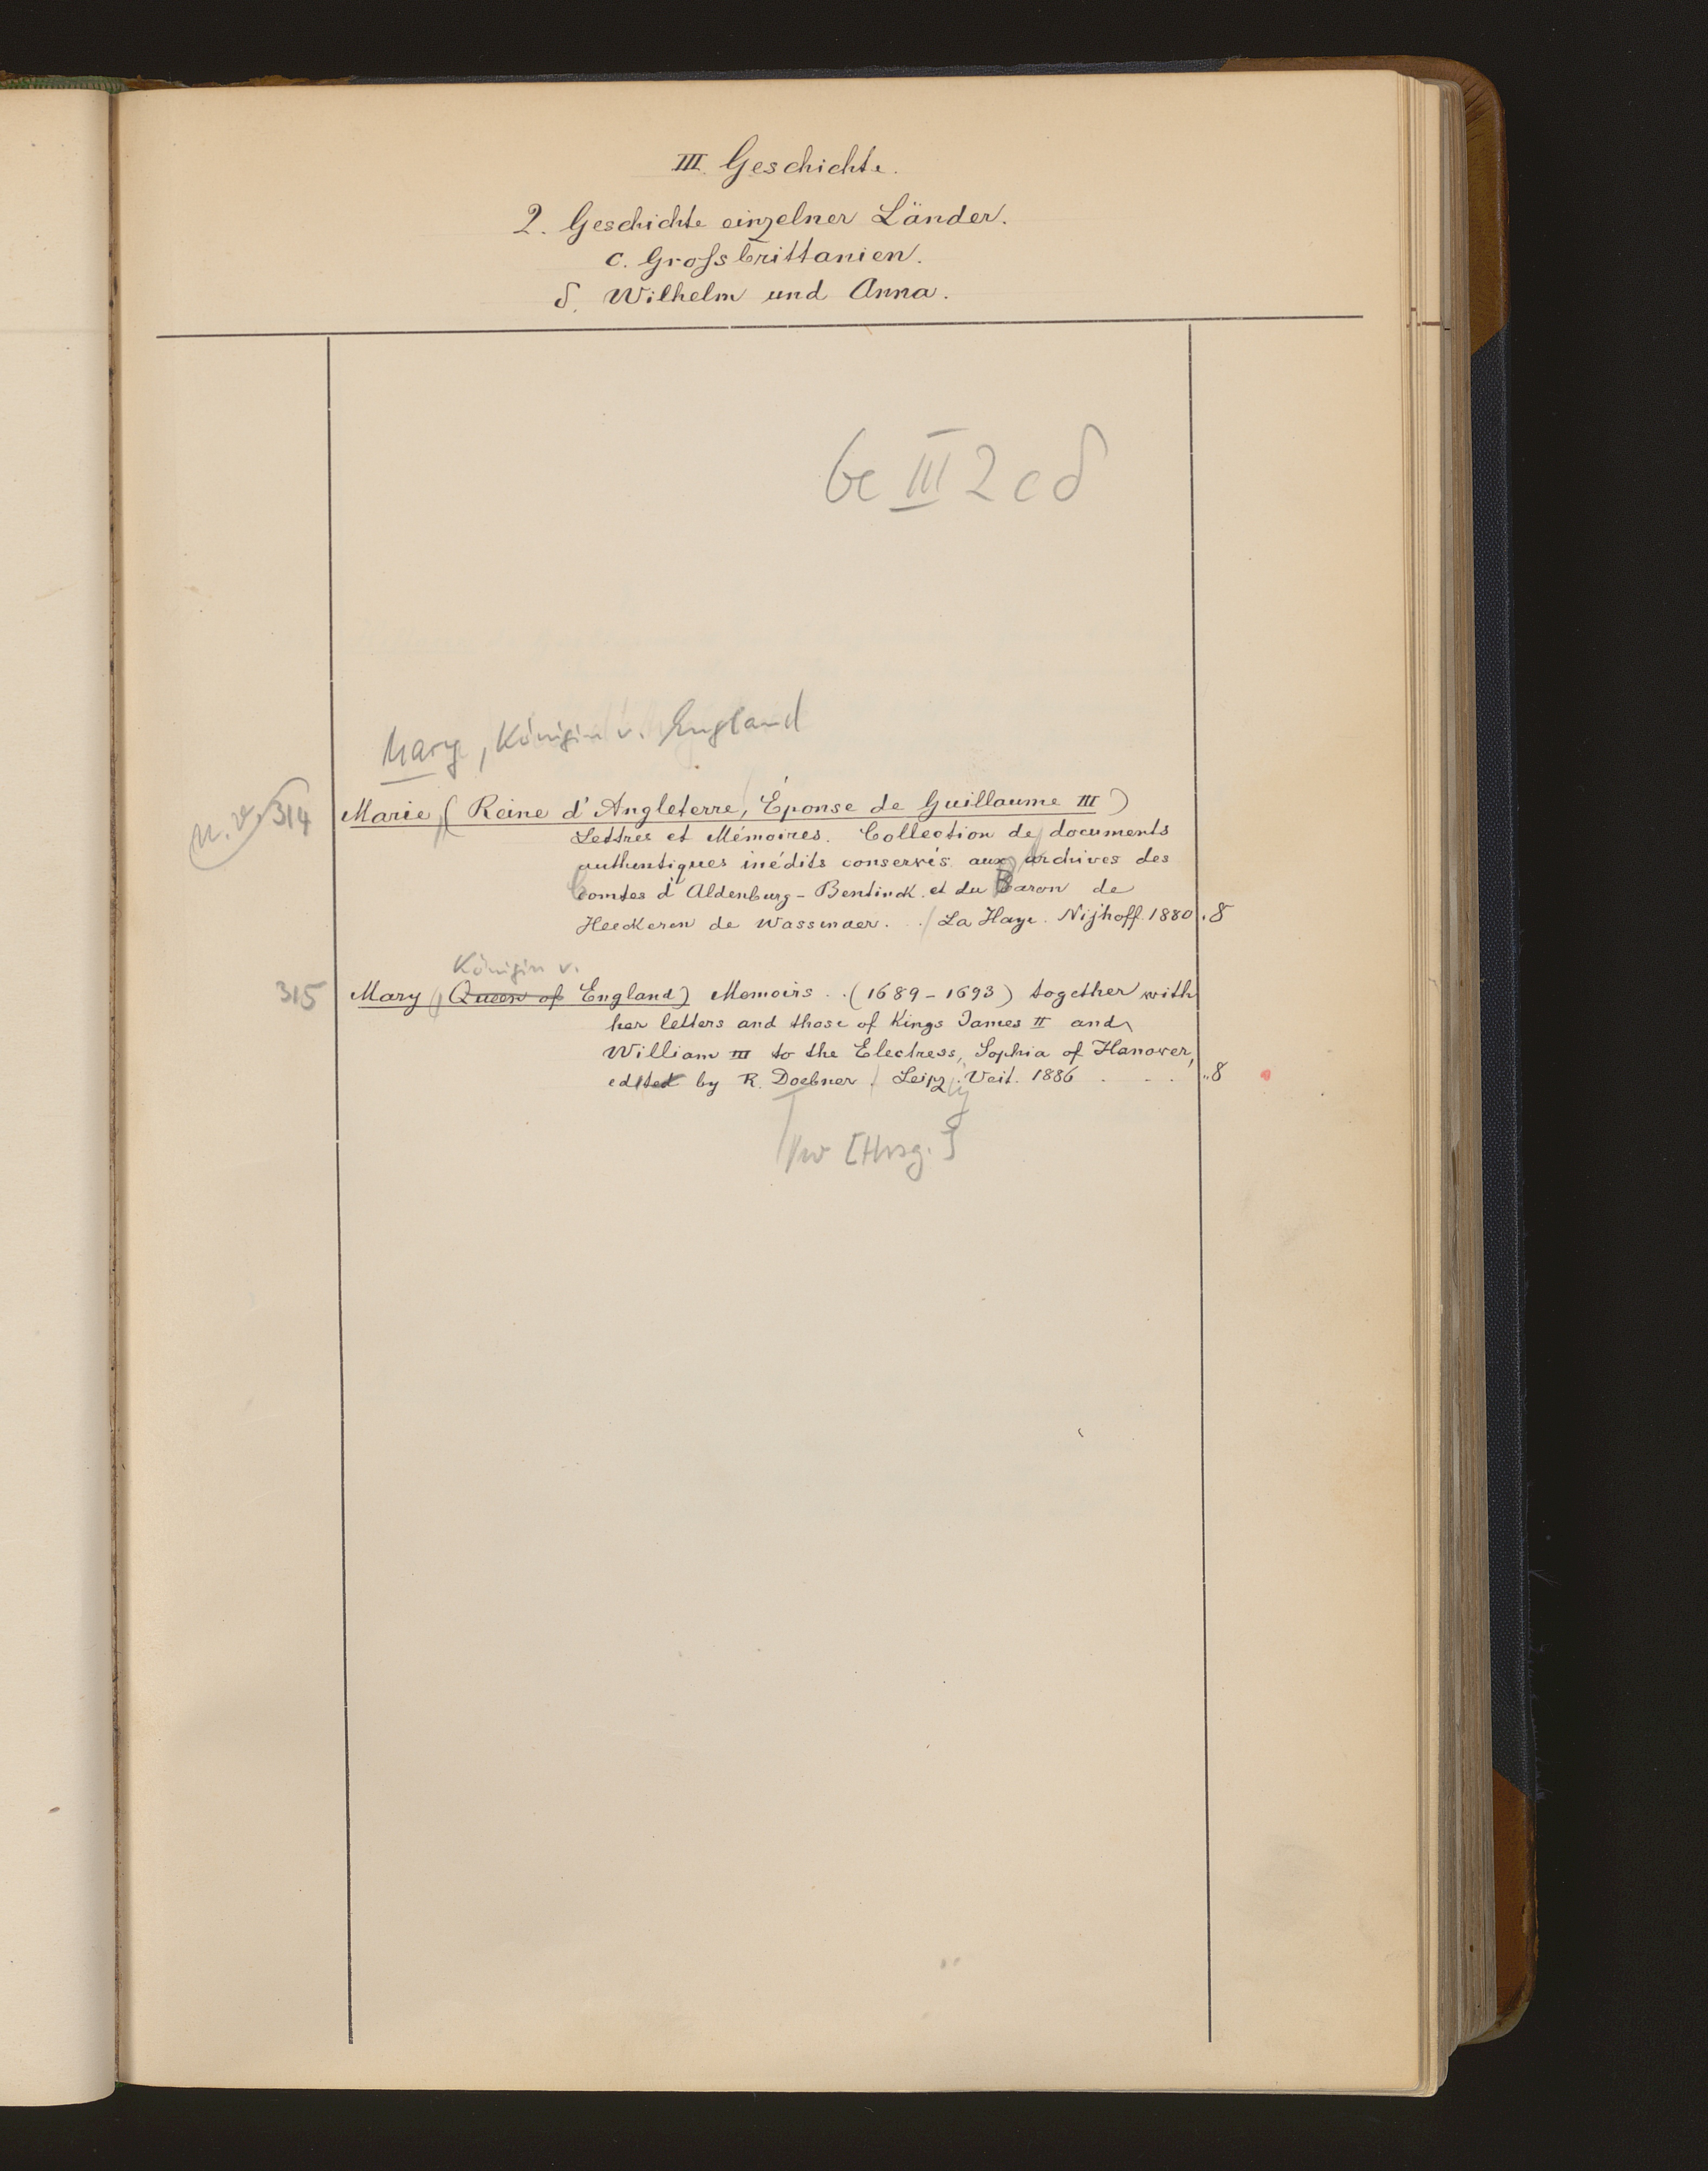 III. Geschichte.
2. Geschichte einzelner Länder.
c. Grossbrittanien.
δ. Wilhelm und Anna.
III 2 c δ
Mary, Königin v. England
314 Marie, (Reine d'Angleterre, Éponse de Guillaume III)
Lettres et Mémoires. Collection de documents
authentiques inédits conservés aux archives des
Comtes d'Aldenburg-Bentinck et du Baron de
Heeckeren de Wassenaer. . . La Haye. Nijhoff. 1880 . 8
Königin v.
315 Mary (Queen of England) Memoirs . . (1689-1693) together with
her letters and those of Kings James II and
William III to the Electress, Sophia of Hanover,
edited by R. Doebner. Leipzig. Veit. 1886 . . . . . 8
[Hrsg.]